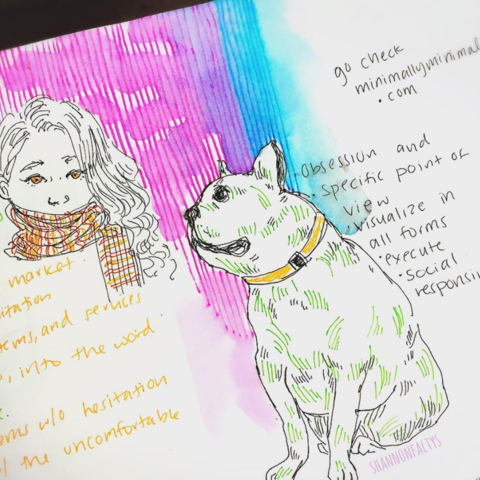 go check
minimallyminimal
.com
• Obsession and
• specific point of
view
visualize in
all forms
• execute
• social
responsi
market.
itation
tems, and services
, into the word
ems w/o hesitation
the uncomfortable
SHANNONFALTYS